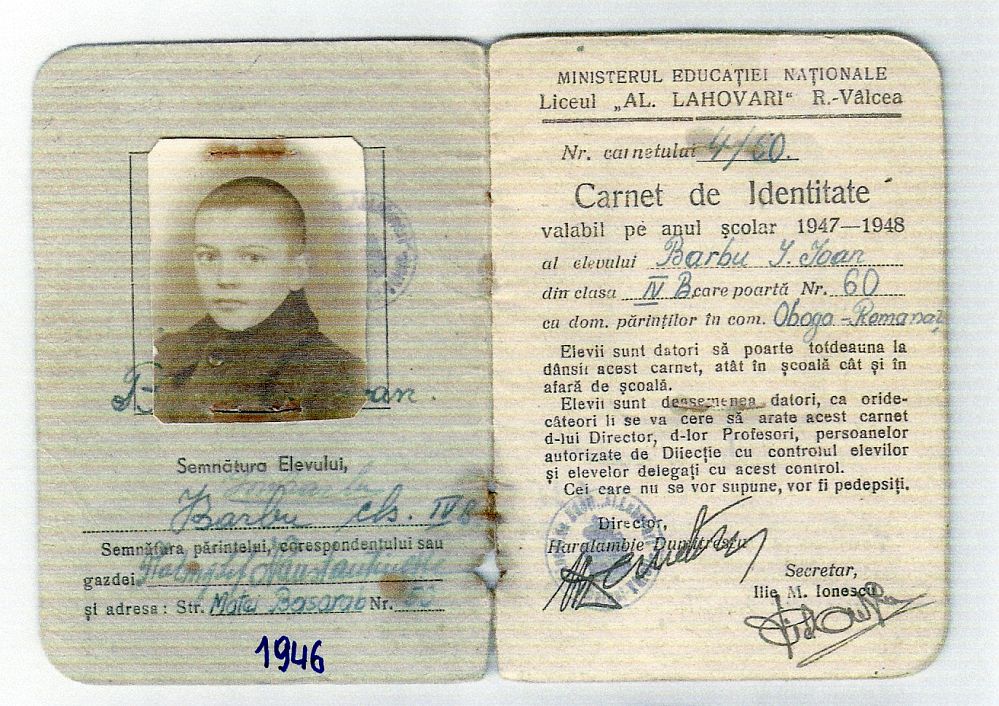 B an.
Semnătura Elevului,
Barbu cls. IV B
Semnătura, părintelui, corespondentului sau
gazdei
și adresa: Str. Matei Basarab Nr. 50
1946
MINISTERUL EDUCAȚIEI NAȚIONALE
Liceul „AL. LAHOVARI“ R.-Vâlcea
Nr. carnetului 4/60.
Carnet de Identitate
valabil pe anul școlar 1947—1948
al elevului Barbu I. Ioan
din clasa IV B care poartă Nr. 60
cu dom. părinților în com. Oboga-Romanați
Elevii sunt datori să poarte totdeauna la
dânșii acest carnet, atât în școală cât și în
afară de școală.
Elevii sunt deasemenea datori, ca oride-
câteori li se va cere să arate acest carnet
d-lui Director, d-lor Profesori, persoanelor
autorizate de Diiecție cu controlul elevilor
și elevelor delegați cu acest control.
Cei care nu se vor supune, vor fi pedepsiți.
Director,
Haralambie Dumitrescu
Secretar,
Ilie M. Ionescu